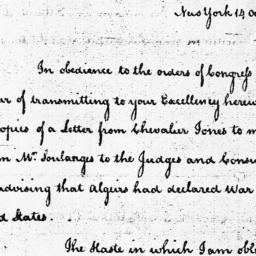 New York 14 Oc
In obedience to the orders of Congress
of transmitting to your Excellency herew
opies of a Letter from Chevalier Jones to m
Mr. Soulanges to the Judges and Consu
advising that Algiers had declared War
d States.
The Haste in which I am obl